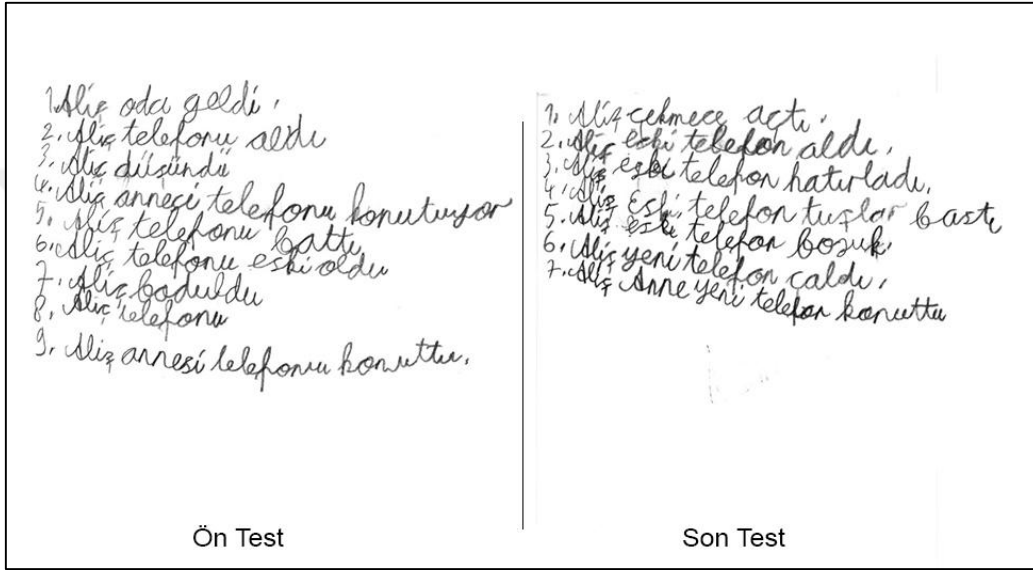 1. Aliş oda geldi.
2. Aliş telefonu aldı
3. Aliş düşündü
4. Aliş annesi telefonu konutuyor
5. Aliş telefonu battı
6. Aliş telefonu eski oldu
7. Aliş boduldu
8. Aliş telefonu
9. Aliş annesi telefonu konuttu.
Ön Test
1. Aliş çekmece açtı.
2. Aliş eski telefon aldı.
3. Aliş eski telefon hatırladı.
4. Aliş Eski telefon tuşlar bastı
5. Aliş eski telefon bozuk.
6. Aliş yeni telefon çaldı.
7. Aliş Anne yeni telefon konuttu
Son Test